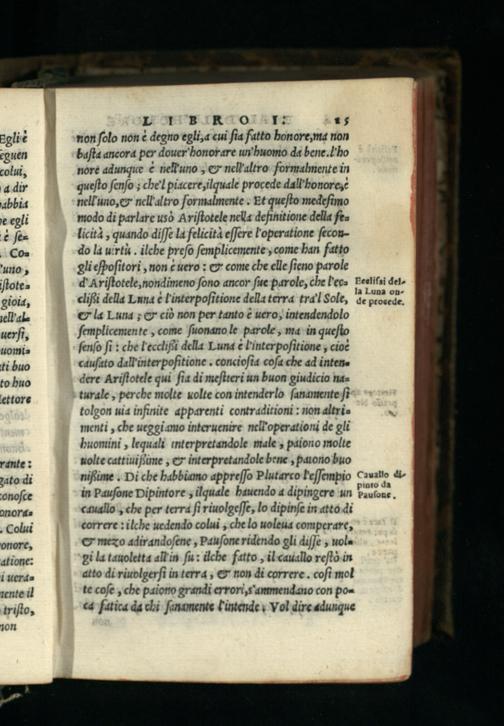 LIBRO I. 25
non solo non è degno egli, a cui sia fatto honore, ma non
basta ancora per douer'honorare un'huomo da bene. l'ho
nore adunque è nell'uno, & nell'altro formalmente in
questo senso; che'l piacere, ilquale procede dall'honore, è
nell'uno, & nell'altro formalmente. Et questo medesimo
modo di parlare usò Aristotele nella definitione della fe=
licità, quando disse la felicità essere l'operatione secon=
do la uirtù. ilche preso semplicemente, come han fatto
gli espositori, non è uero: & come che elle sieno parole
d'Aristotele, nondimeno sono ancor sue parole, che l'ec=
clissi della Luna è l'interpositione della terra tra'l Sole,
& la Luna; & ciò non per tanto è uero, intendendolo
semplicemente, come suonano le parole, ma in questo
senso si: che l'ecclissi della Luna è l'interpositione, cioè
causato dall'interpositione. conciosia cosa che ad inten=
dere Aristotele qui sia di mestieri un buon giudicio na=
turale, perche molte uolte con intenderlo sanamente si
tolgon uia infinite apparenti contraditioni: non altri=
menti, che ueggiamo interuenire nell'operationi de gli
huomini, lequali interpretandole male, paiono molte
uolte cattiuissime, & interpretandole bene, paiono buo
nissime. Di che habbiamo appresso Plutarco l'essempio
in Pausone Dipintore, ilquale hauendo a dipingere un
cauallo, che per terra si riuolgesse, lo dipinse in atto di
correre: ilche uedendo colui, che lo uoleua comperare,
& mezo adirandosene, Pausone ridendo gli disse, uol=
gi la tauoletta all'in su: ilche fatto, il cauallo restò in
atto di riuolgersi in terra, & non di correre. così mol
te cose, che paiono grandi errori, s'ammendano con po=
ca fatica da chi sanamente l'intende. Vol dire adunque
Ecclissi del=
la Luna on=
de procede.
Cauallo di=
pinto da
Pausone.
Egli è
seguen
colui,
a dir
habbia
he egli
è se=
Co=
l'uno,
istote=
gioia,
nell'al=
uersi,
uomi=
ti buo
to huo
lettore
rante:
gato di
conosce
onora=
Colui
onore,
atione:
i uera=
mente il
tristo,
non